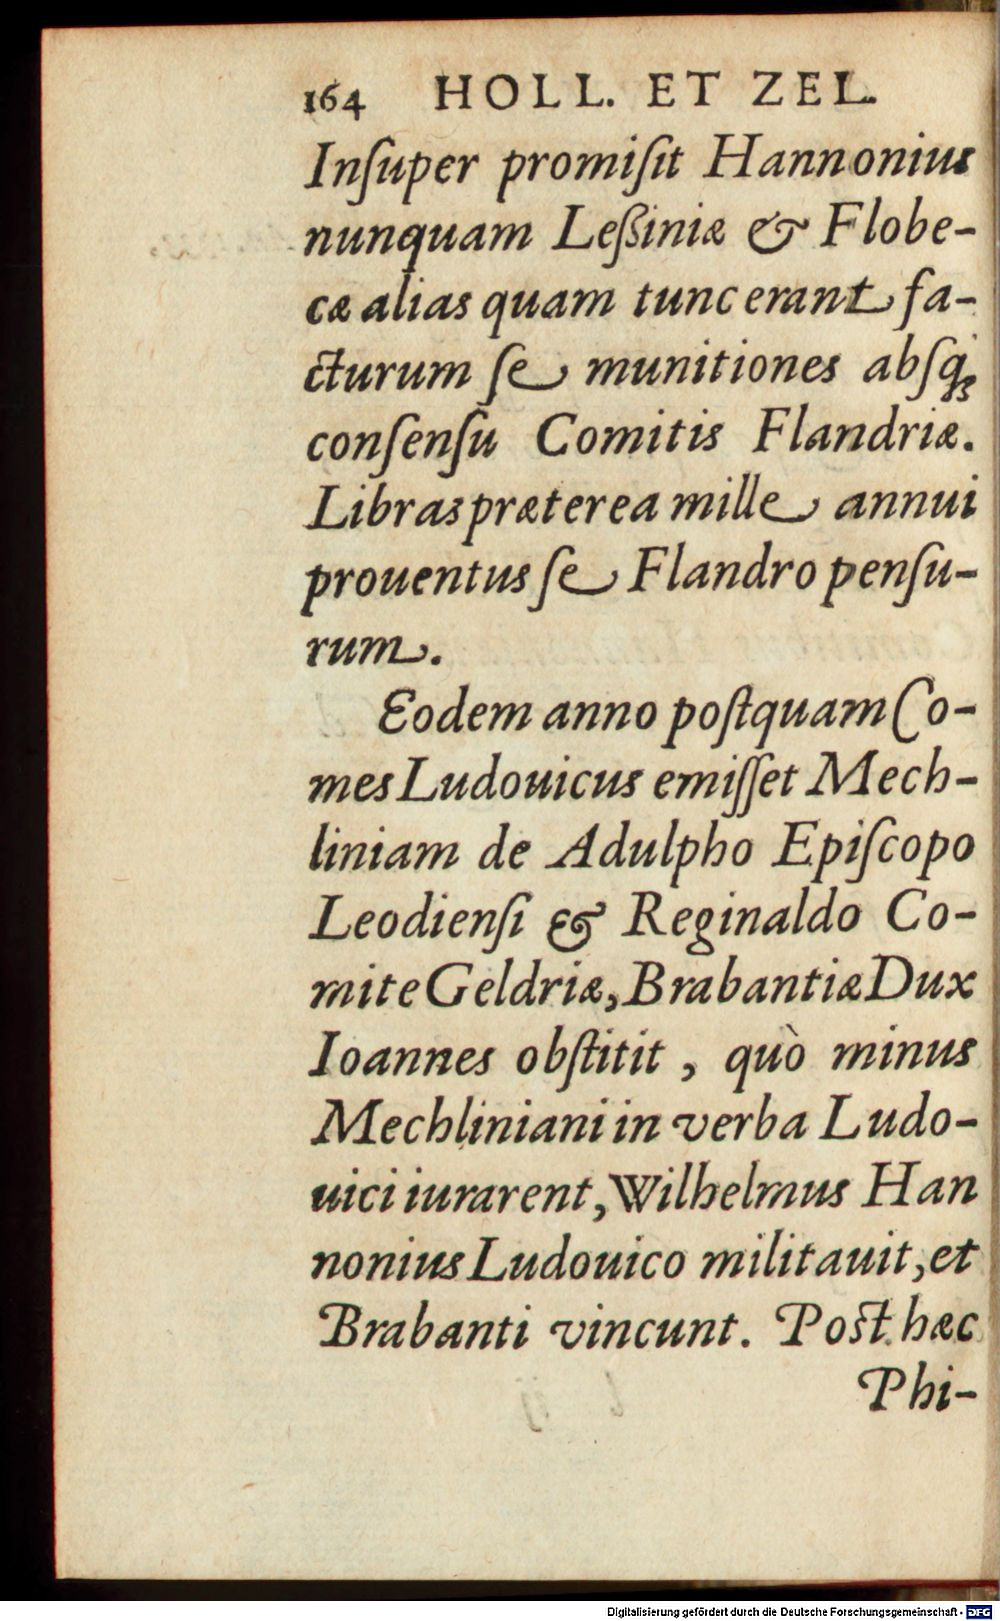 164 HOLL. ET ZEL.
Inſuper promiſit Hannonius
nunquam Leßiniæ & Flobe-
cæ alias quam tunc erant fa-
cturum ſe munitiones abſq;
conſenſu Comitis Flandriæ.
Libras præterea mille annui
prouentus ſe Flandro penſu-
rum.
Eodem anno poſtquam Co-
mes Ludouicus emiſſet Mech-
liniam de Adulpho Epiſcopo
Leodienſi & Reginaldo Co-
mite Geldriæ, Brabantiæ Dux
Ioannes obſtitit, quò minus
Mechliniani in verba Ludo-
uici iurarent, Wilhelmus Han
nonius Ludouico militauit, et
Brabanti vincunt. Poſt hæc
Phi-
Digitalisierung gefördert durch die Deutsche Forschungsgemeinschaft - DFG